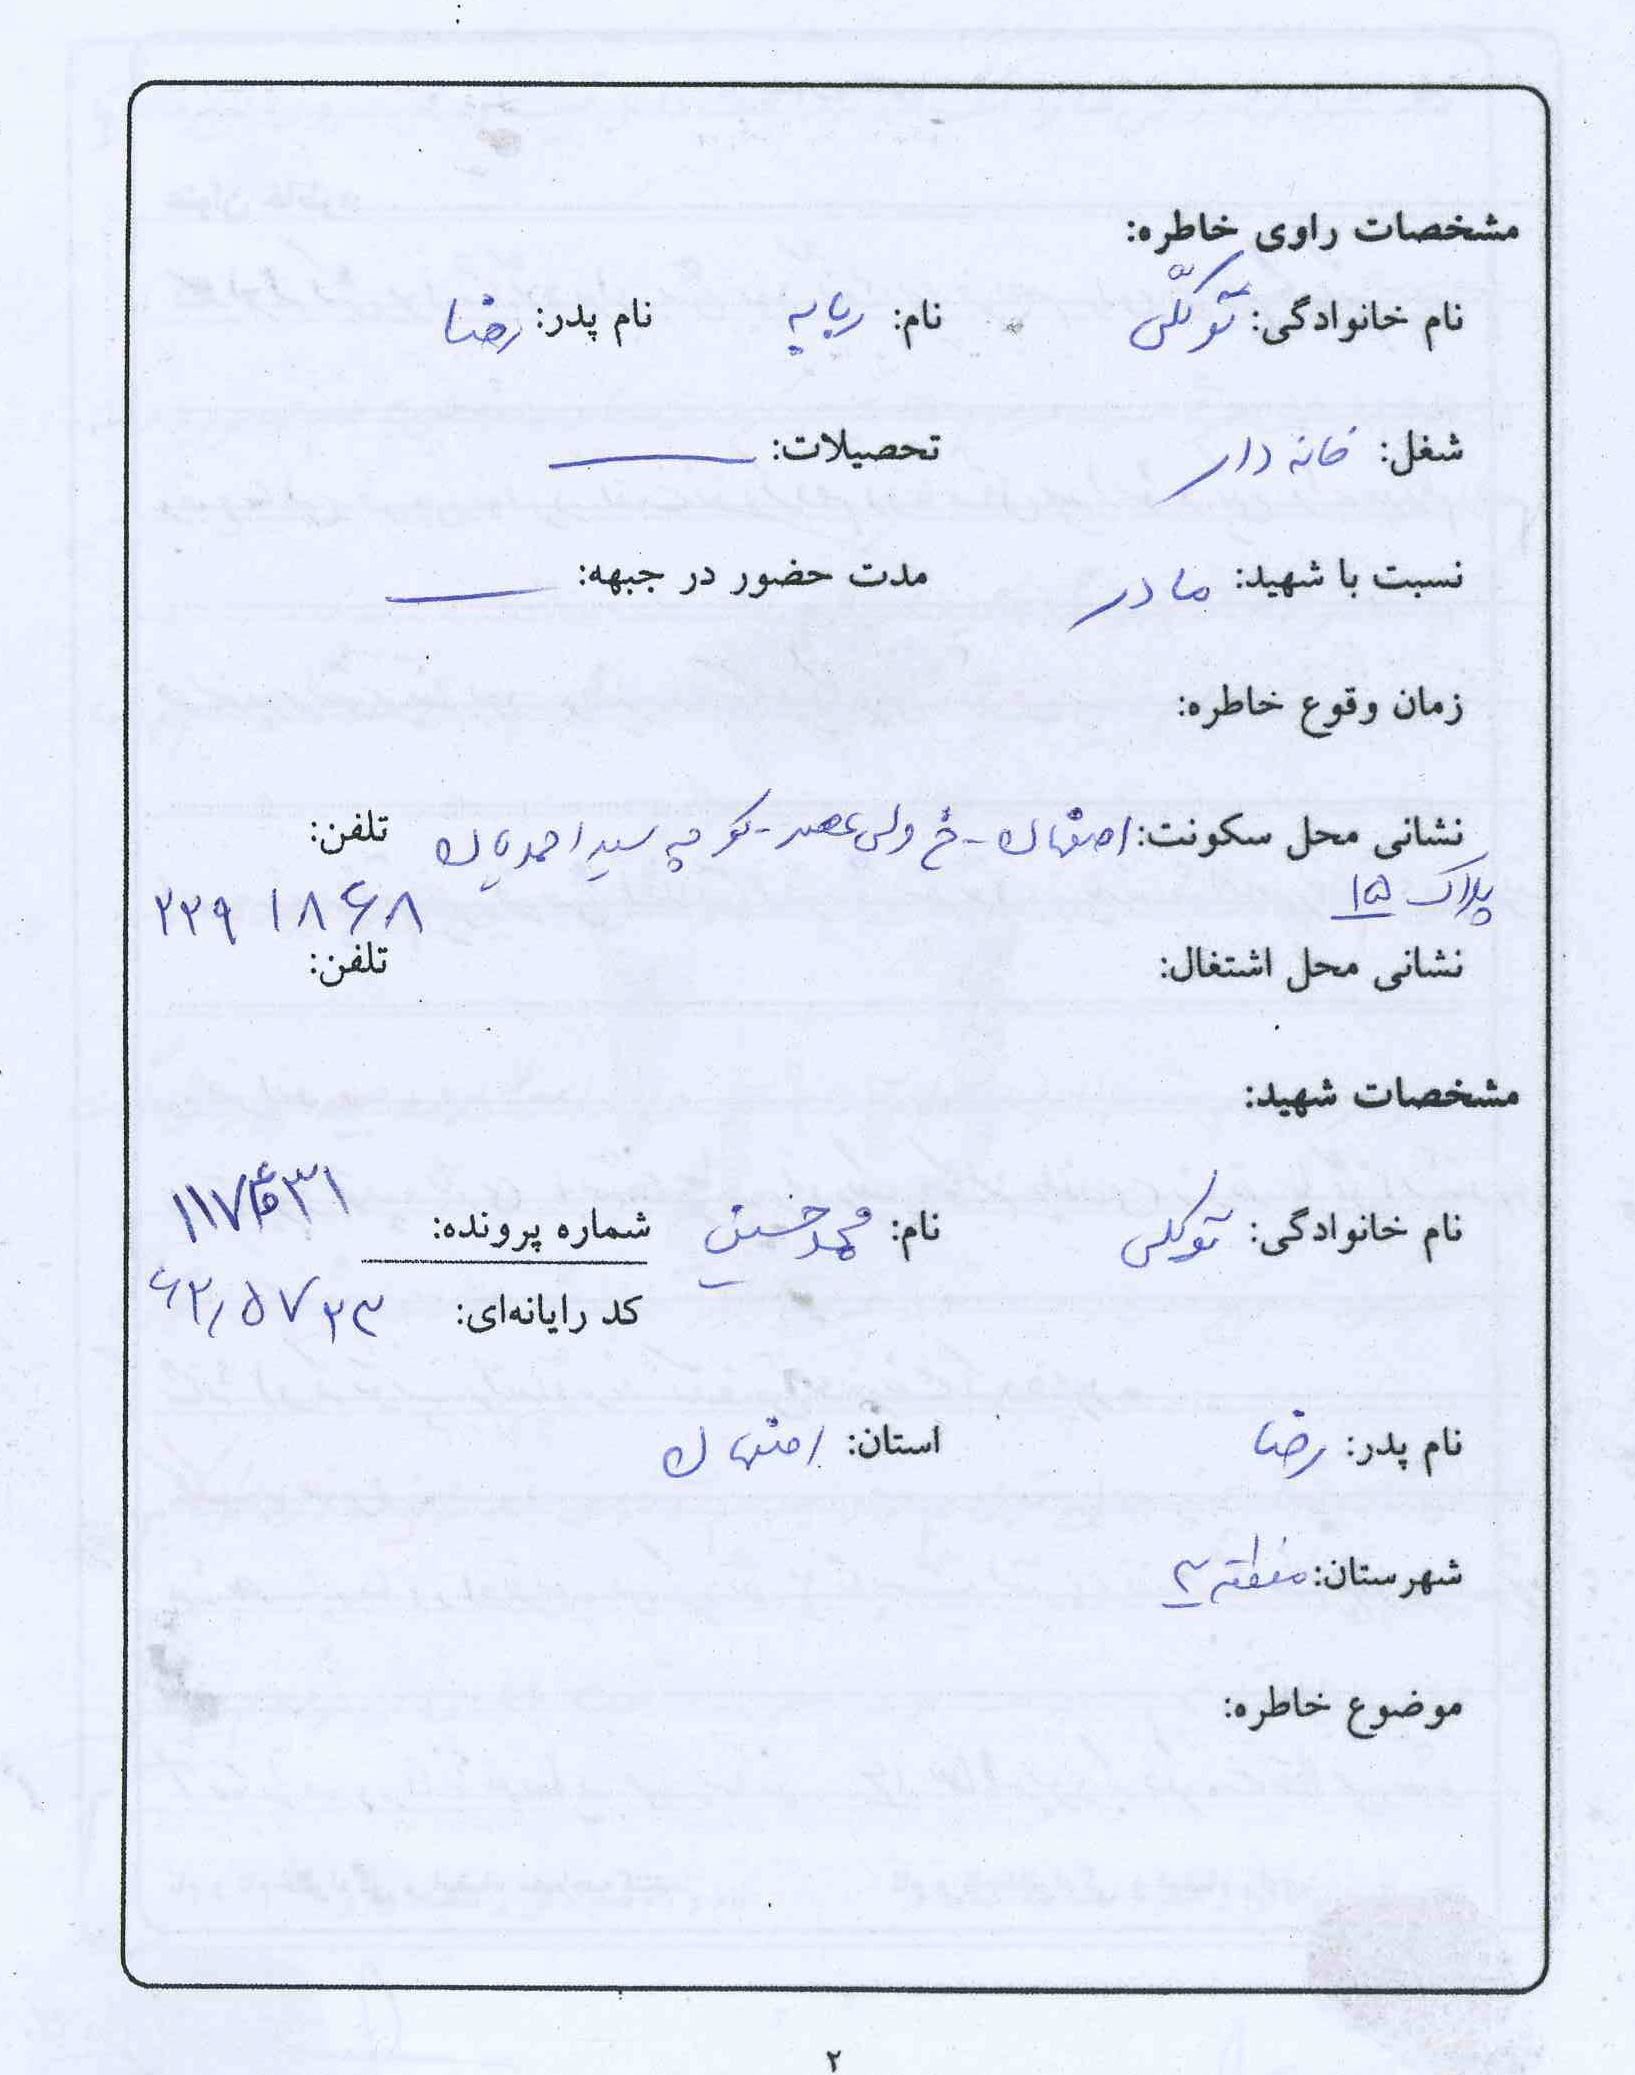 مشخصات راوی خاطره:
نام خانوادگی: توکلّی نام: ربابه نام پدر: رضا
شغل: خانه دار تحصیلات: ــــ
نسبت با شهید: مادر مدت حضور در جبهه: ــــ
زمان وقوع خاطره:
نشانی محل سکونت: اصفهان - خ ولی عصر - کوچه سید احمدیان تلفن:
پلاک ۱۵ ۲۲۹۱۸۶۸
نشانی محل اشتغال: تلفن:
مشخصات شهید:
نام خانوادگی: توکلی نام: محمدحسین شماره پرونده:
کد رایانه‌ای: ۶۲٫۵۷۲۳
نام پدر: رضا استان: اصفهان
شهرستان: منطقه ۲
موضوع خاطره:
۲